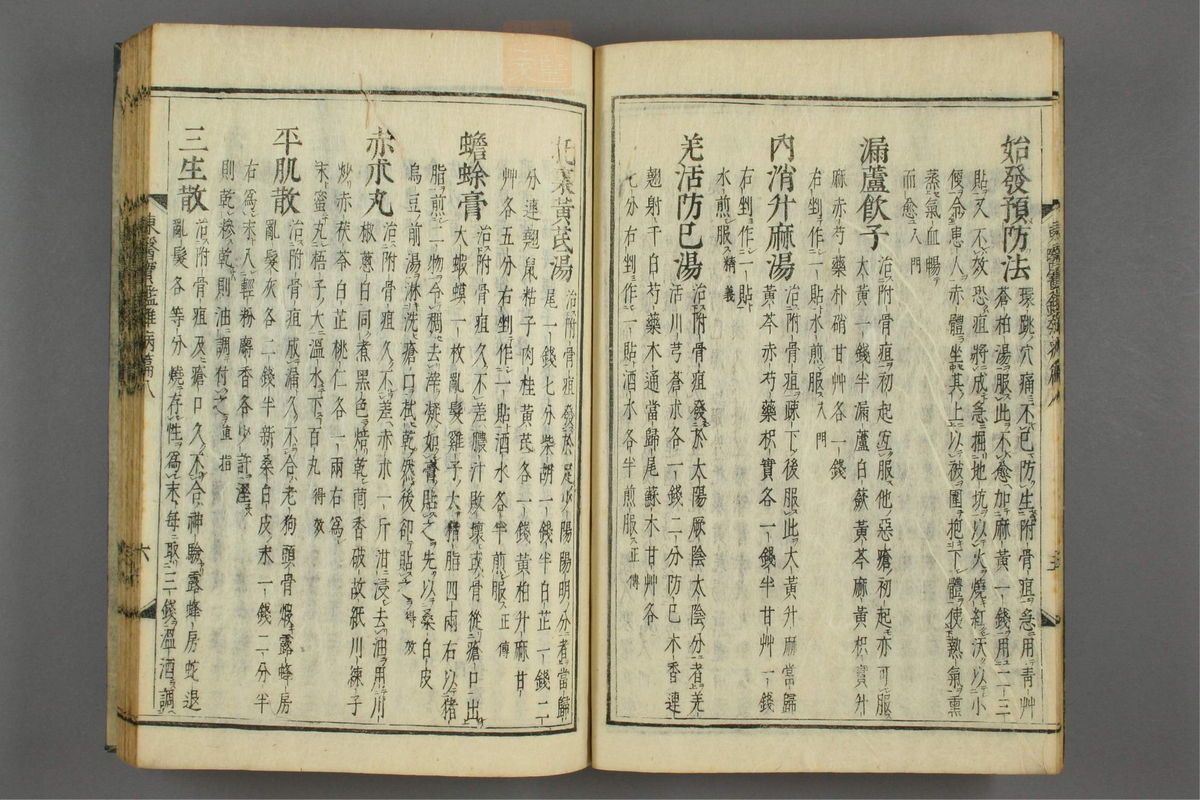 始發預防法 環跳穴痛不已防生附骨疽急用青艸
蒼柏湯服此不愈加麻黃一錢用二三
貼又不效恐疽將成急掘地坑以火燒紅沃以小
便令患人赤體坐其上以被圍抱下體使熱氣熏
蒸氣血暢
而愈入門
漏蘆飮子 治附骨疽初起宜服他惡瘡初起亦可服
大黃一錢半漏蘆白蘞黃芩麻黃枳實升
麻赤芍藥朴硝甘艸各一錢
右剉作一貼水煎服入門
內消升麻湯 治附骨疽疎下後服此大黃升麻當歸
黃芩赤芍藥枳實各一錢半甘艸一錢
右剉作一貼
水煎服精義
羌活防已湯 治附骨疽發於太陽厥陰太陰分者羌
活川芎蒼朮各一錢二分防已木香連
翹射干白芍藥木通當歸尾蘇木甘艸各
七分右剉作一貼酒水各半煎服正傳
黃芪湯 治附骨疽發於足少陽陽明分者當歸
尾一錢七分柴胡一錢半白芷一錢二
分連翹鼠粘子肉桂黃芪各一錢黃柏升麻甘
艸各五分右剉作一貼酒水各半煎服正傳
蟾蜍膏 治附骨疽久不差膿汁敗壞或骨從瘡口出
大蝦蟆一枚亂髮雞子大猪脂四兩右以猪
脂煎二物令稠去滓凝如膏貼之先以桑白皮
烏豆煎湯淋洗瘡口拭乾然後卻貼之得效
赤朮丸 治附骨疽久不差赤朮一斤泔浸去油用川
椒蔥白同煮黑色焙乾茴香破故紙川練子
炒赤茯苓白芷桃仁各一兩右爲
末蜜丸梧子大溫水下百丸得效
平肌散 治附骨疽成漏久不合老狗頭骨煆露蜂房
亂髮灰各二錢半新桑白皮末一錢二分半
右爲末入輕粉麝香各少許溼
則乾糝乾則油調付之直指
三生散 治附骨疽及瘡口久不合神驗露蜂房蛇退
亂髮各等分燒存性爲末每取三錢溫酒調
東醫寶鑑雜病篇八
六